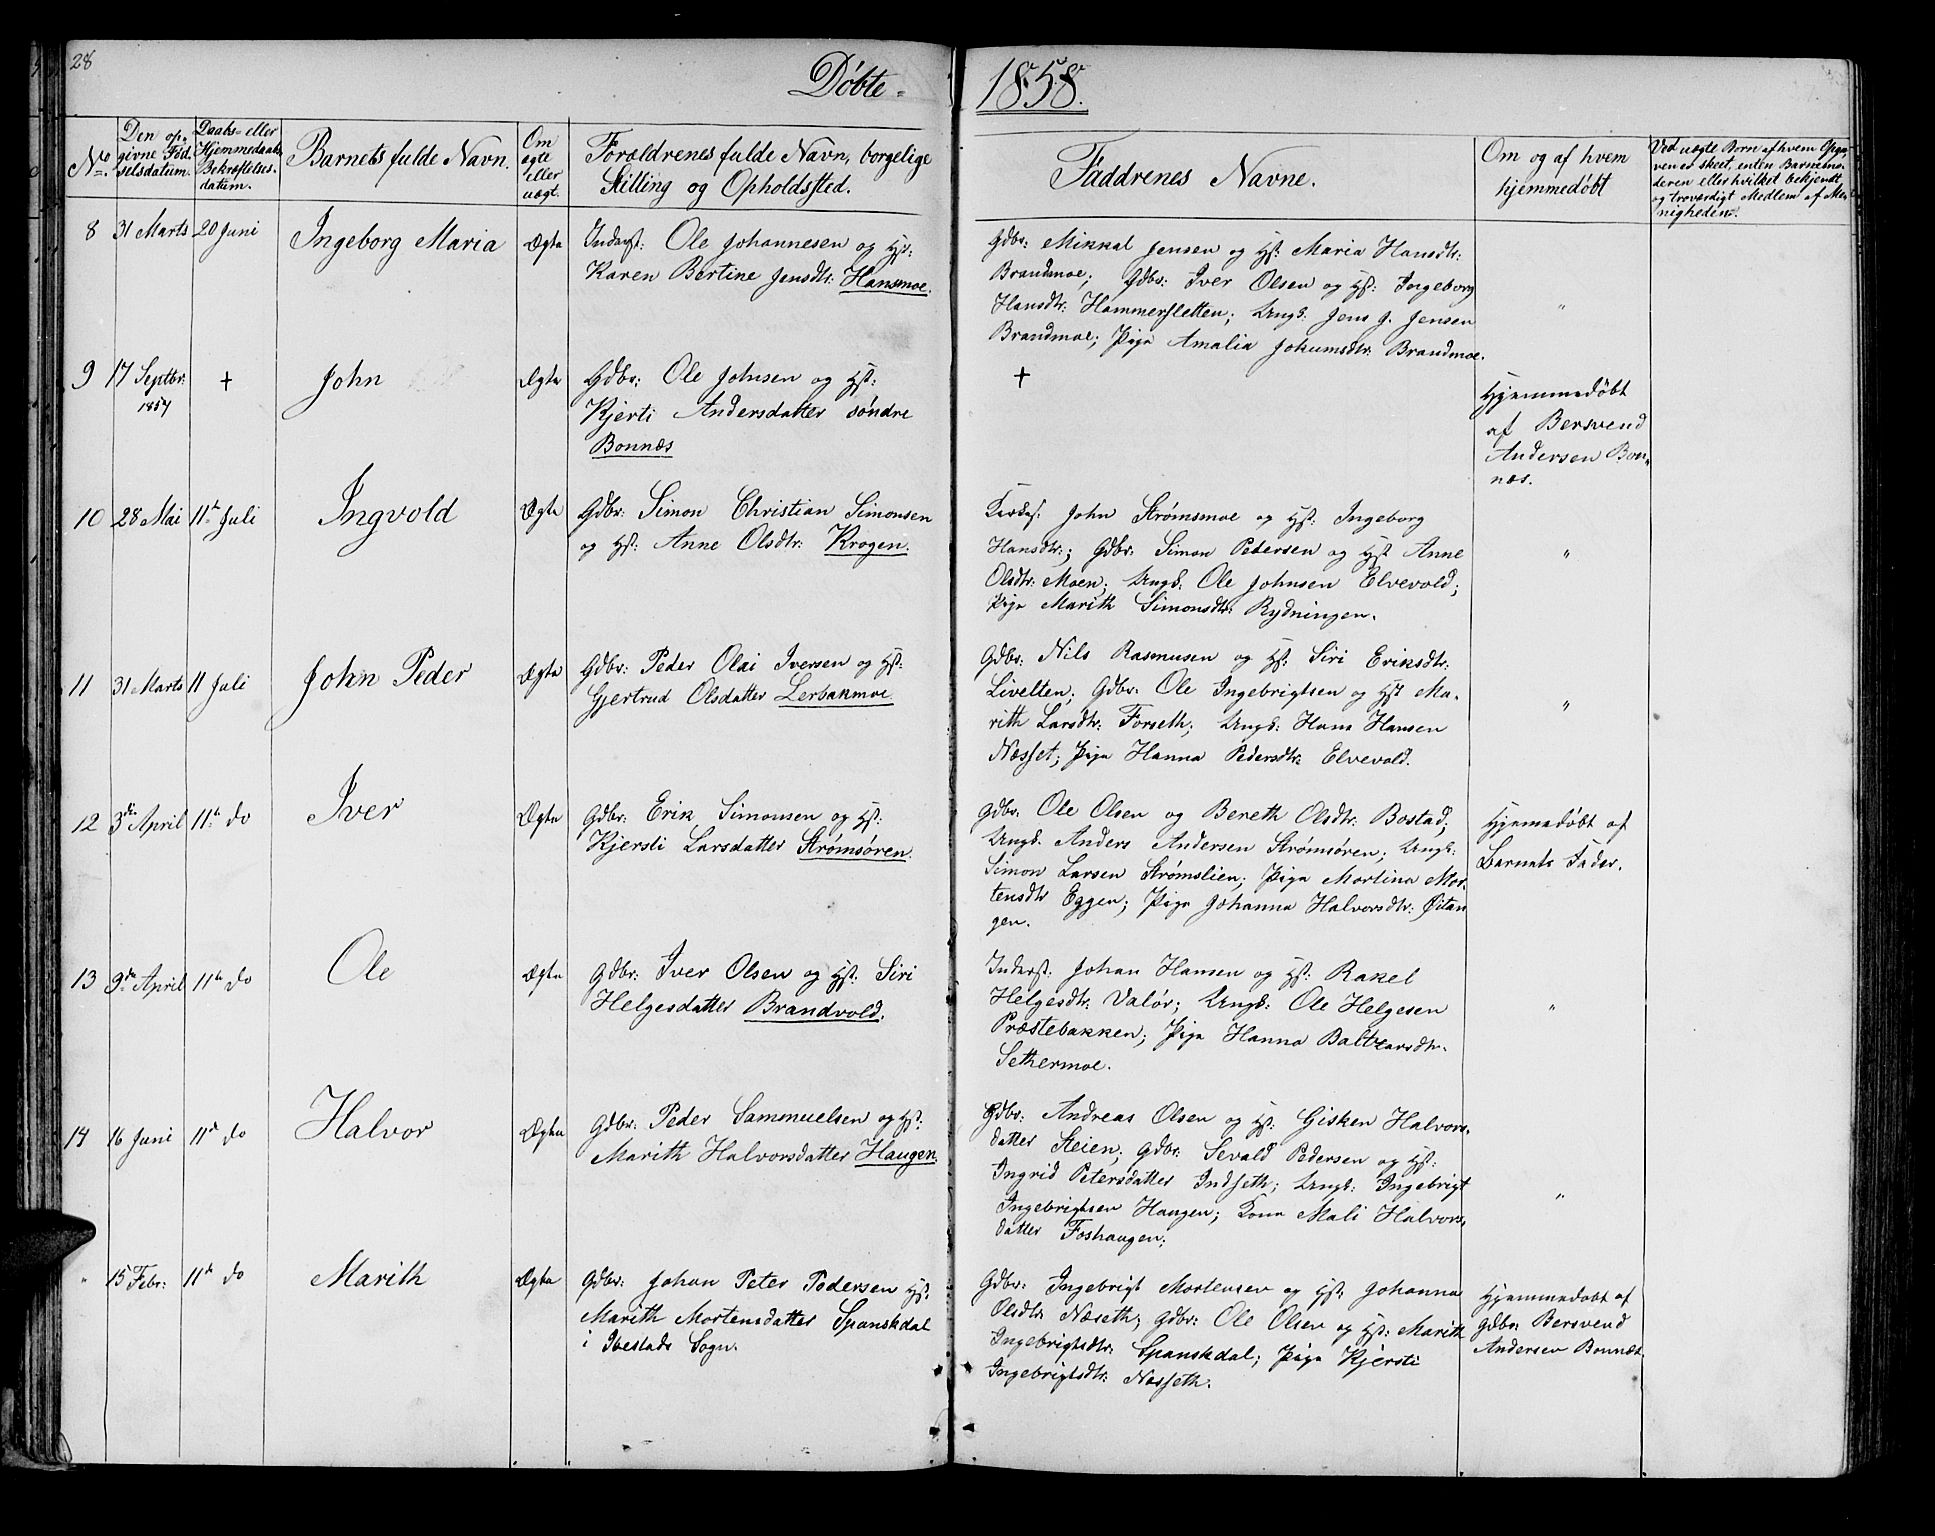 28
Døbte 1858.
No.
Den op-
givne Fød-
selsdatum.
Daabs- eller
Hjemmedaabs
Bekræftelses-
datum.
Barnets fulde Navn.
Om
ægte
eller
uægt.
Forældrenes fulde Navn, borgelige
Stilling og Opholdssted.
Faddrenes Navne.
Om og af hvem
hjemmedøbt
Ved uægte Børn af hvem Opga-
ven er skeet, enten Barnemo-
deren eller hvilket bekjendt
og troværdigt Medlem af Me-
nigheden.
8 31 Marts 20 Juni Ingeborg Maria Ægte
Inderst: Ole Johannesen og Hst:
Karen Bertine Jensdtr: Hansmoe.
Gdbr: Mikkal Jensen og Hst: Maria Hansdtr:
Brandmoe; Gdbr: Iver Olsen og Hst: Ingeborg
Hansdtr: Hammersletten; Ungk: Jens J. Jensen
Brandmoe; Pige Amalia Jokumsdtr: Brandmoe.
"
9 17 Septbr:
1857
+ John Ægte
Gdbr: Ole Johnsen og Hst:
Kjerti Andersdatter søndre
Bonnæs
+
Hjemmedøbt
af Bersvend
Andersen Bon-
næs.
10 28 Mai 11te Juli Ingvold Ægte
Gdbr: Simon Christian Simonsen
og Hst: Anne Olsdtr: Krogen.
John Strømsmoe og Hst: Ingeborg
Hansdtr:; Gdbr: Simon Pedersen og Hst Anne
Olsdtr: Moen; Ungk: Ole Johnsen Elvevold;
Pige Marith Simonsdtr: Rydningen.
"
11 31 Marts 11 Juli John Peder Ægte
Gdbr: Peder Olai Iversen og Hst:
Gjertrud Olsdatter Lerbakmoe
Gdbr: Nils Rasmusen og Hst: Siri Eriksdtr:
Livelten; Gdbr: Ole Ingebrigtsen og Hst Ma-
rith Larsdtr: Forseth; Ungk: Hans Hansen
Næsset; Pige Hanna Pedersdtr: Elvevold.
"
12 3die April 11te do Iver Ægte
Gdbr: Erik Simonsen og Hst:
Kjersti Larsdatter Strømsøren.
Gdbr: Ole Olsen og Bereth Olsdtr: Bostad;
Ungk. Anders Andersen Strømsøren; Ungk:
Simon Larsen Strømslien; Pige Martina Mor-
tensdtr Eggen; Pige Johanna Halvorsdtr: Øitan
gen.
Hjemedøbt af
Barnets Fader.
13 9de April 11te do Ole Ægte
Gdbr: Iver Olsen og Hst: Siri
Helgesdatter Brandvold.
Inderst: Johan Hansen og Hst: Rakel
Helgesdtr: Valør; Ungk: Ole Helgesen
Præstebakken; Pige Hanna Baltzarsdtr.
Sethermoe.
"
14 16 Juni 11te do Halvor Ægte
Gdbr: Peder Sammuelsen og Hst:
Marith Halvorsdatter Haugen.
Gdbr: Andreas Olsen og Hst: Gisken Halvors-
datter Steien; Gdbr: Sevald Pedersen og Hst:
Ingrid Petersdatter Indseth; Ungk: Ingebrigt
Ingebrigtsen Haugen; Kona Mali Halvors-
datter Foshaugen;
"
" 15 Febr: 11te do Marith Ægte
Gdbr: Johan Peter Pedersen Hst:
Marith Mortensdatter Spanskdal
i Ibestads Sogn.
Gdbr: Ingebrigt Mortensen og Hst: Johanna
Olsdtr: Næseth; Gdbr: Ole Olsen og Hst: Marith
Ingebrigtsdtr: Spanskdal; Pige Kjersti
Ingebrigtsdtr: Næsseth.
Hjemmedøbt af
Gdbr: Bersvend
Andersen Bonnæs.